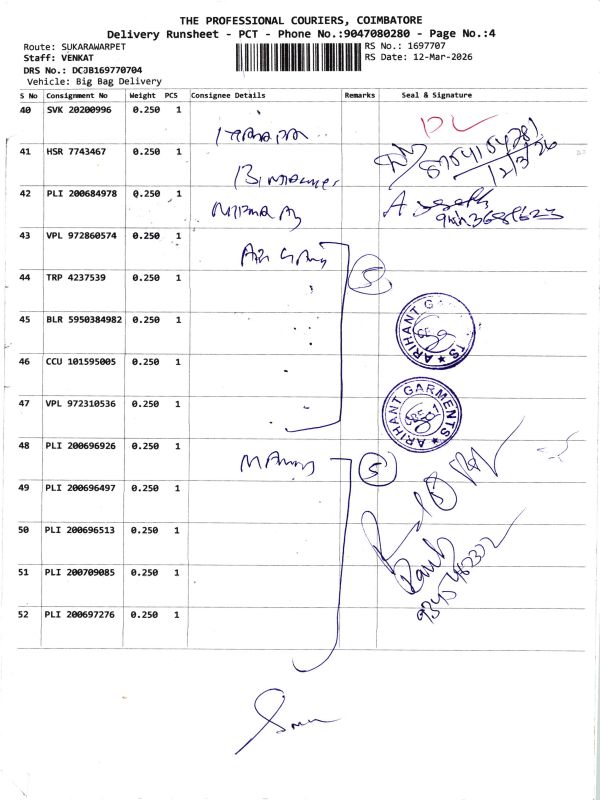 THE PROFESSIONAL COURIERS, COIMBATORE
Delivery Runsheet - PCT - Phone No.:9047080280 - Page No.:4
Route: SUKARAWARPET
RS No.: 1697707
Staff: VENKAT
RS Date: 12-Mar-2026
DRS No.: DCJB169770704
Vehicle: Big Bag Delivery
S No Consignment No Weight PCS Consignee Details Remarks Seal & Signature
40 SVK 20200996 0.250 1
41 HSR 7743467 0.250 1
12/3/26
42 PLI 200684978 0.250 1
43 VPL 972860574 0.250 1
5
44 TRP 4237539 0.250 1
45 BLR 5950384982 0.250 1
ARIHANT G TS
46 CCU 101595005 0.250 1
47 VPL 972310536 0.250 1
ARIHANT GARMENTS
48 PLI 200696926 0.250 1
5
49 PLI 200696497 0.250 1
50 PLI 200696513 0.250 1
51 PLI 200709085 0.250 1
52 PLI 200697276 0.250 1